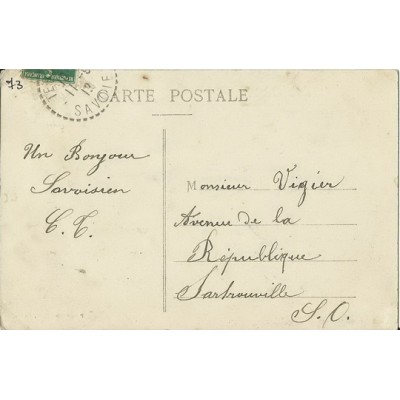 73
CARTE POSTALE
SAVOIE
Un Bonjour
Savoisien
C. T.
Monsieur Vigier
Avenue de la
République
Sartrouville
S. O.